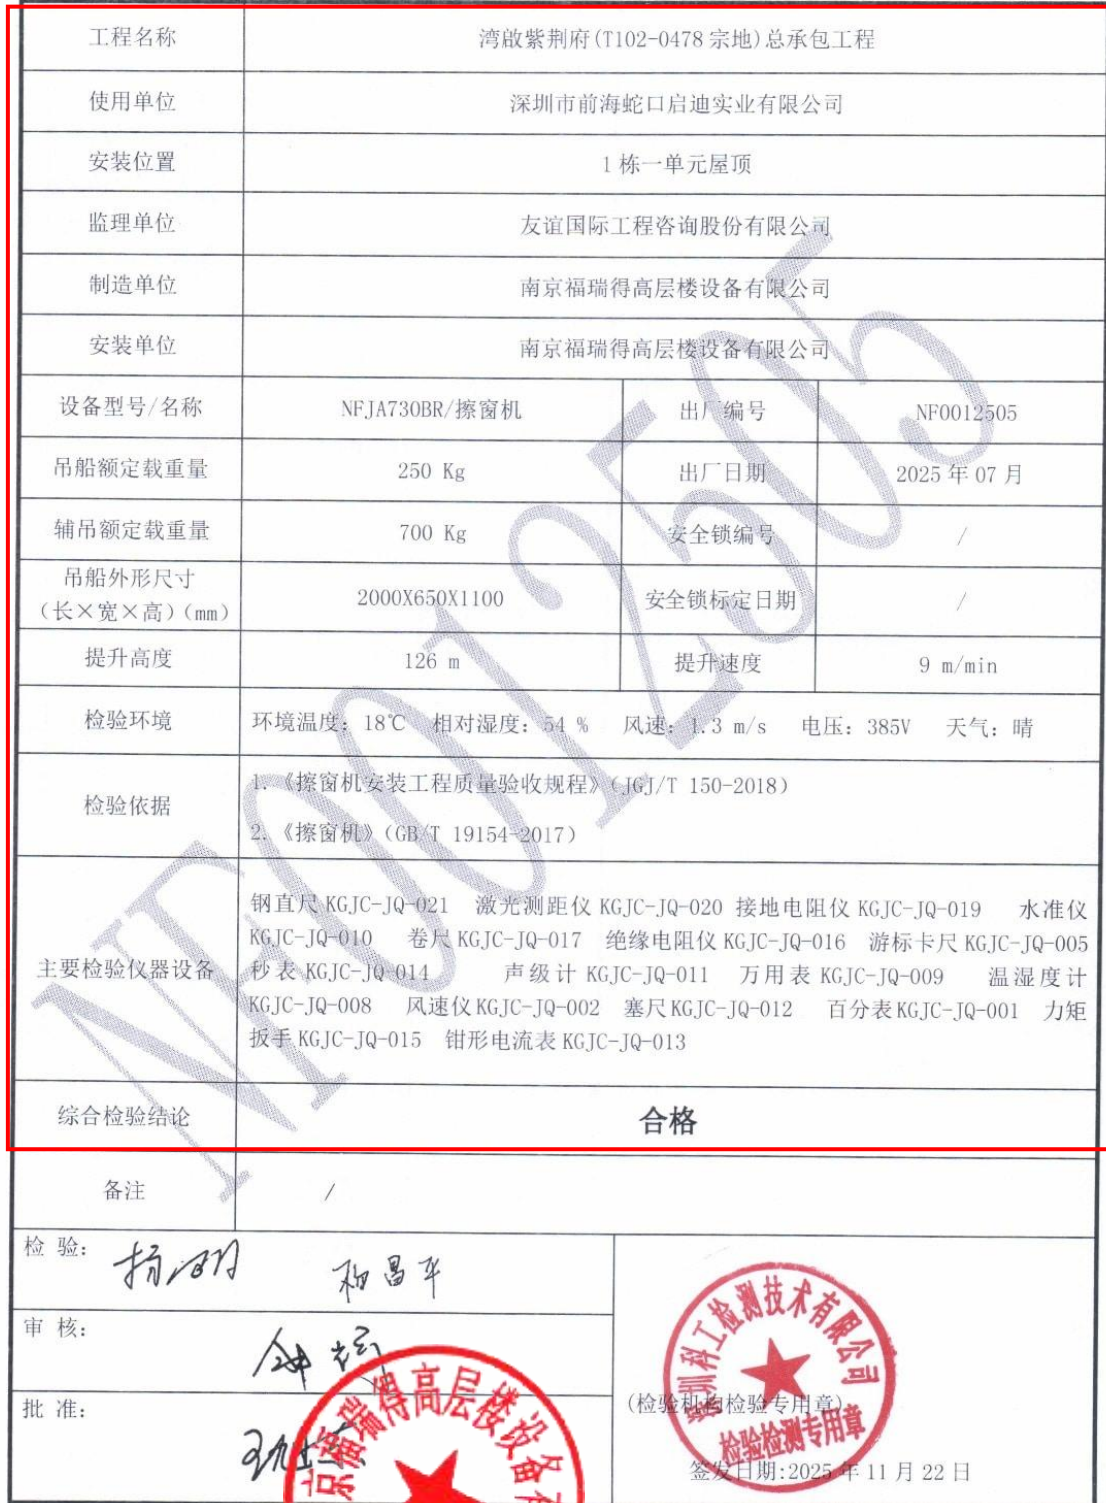 工程名称 湾啟紫荆府(T102-0478宗地)总承包工程
使用单位 深圳市前海蛇口启迪实业有限公司
安装位置 1栋一单元屋顶
监理单位 友谊国际工程咨询股份有限公司
制造单位 南京福瑞得高层楼设备有限公司
安装单位 南京福瑞得高层楼设备有限公司
设备型号/名称 NFJA730BR/擦窗机 出厂编号 NF0012505
吊船额定载重量 250 Kg 出厂日期 2025年07月
辅吊额定载重量 700 Kg 安全锁编号 /
吊船外形尺寸
(长×宽×高)(mm) 2000X650X1100 安全锁标定日期 /
提升高度 126 m 提升速度 9 m/min
检验环境 环境温度：18℃ 相对湿度：54 % 风速：1.3 m/s 电压：385V 天气：晴
检验依据
1.《擦窗机安装工程质量验收规程》(JGJ/T 150-2018)
2.《擦窗机》(GB/T 19154-2017)
主要检验仪器设备
钢直尺KGJC-JQ-021 激光测距仪KGJC-JQ-020 接地电阻仪KGJC-JQ-019 水准仪
KGJC-JQ-010 卷尺KGJC-JQ-017 绝缘电阻仪KGJC-JQ-016 游标卡尺KGJC-JQ-005
秒表KGJC-JQ-014 声级计KGJC-JQ-011 万用表KGJC-JQ-009 温湿度计
KGJC-JQ-008 风速仪KGJC-JQ-002 塞尺KGJC-JQ-012 百分表KGJC-JQ-001 力矩
扳手KGJC-JQ-015 钳形电流表KGJC-JQ-013
综合检验结论 合格
备注 /
NF0012505
检 验：
审 核：
批 准：
深圳科工检测技术有限公司
(检验机构检验专用章)
检验检测专用章
签发日期:2025年11月22日
京福瑞得高层楼设备有